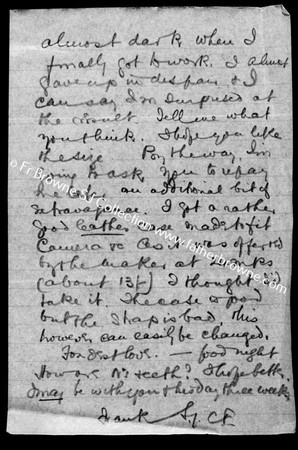 almost dark when I
finally got to work. I almost
gave up in despair & I
can say I'm surprised at
the result. Tell me what
you think. I hope you like
the size. By the way I'm
going to ask you to repay
me for an additional bit of
extravagance. I got a rather
good leather case made to fit
Camera & as it was offered
by the maker at
(about 13/-) I thought I'd
take it. The case is good
but the strap is bad this
however can easily be changed.
Fondest love. — Good night
How are Mr teeth? I hope better.
I may be with you this day three weeks
Frank S.J. C.F.
© Fr Browne S.J. Collection